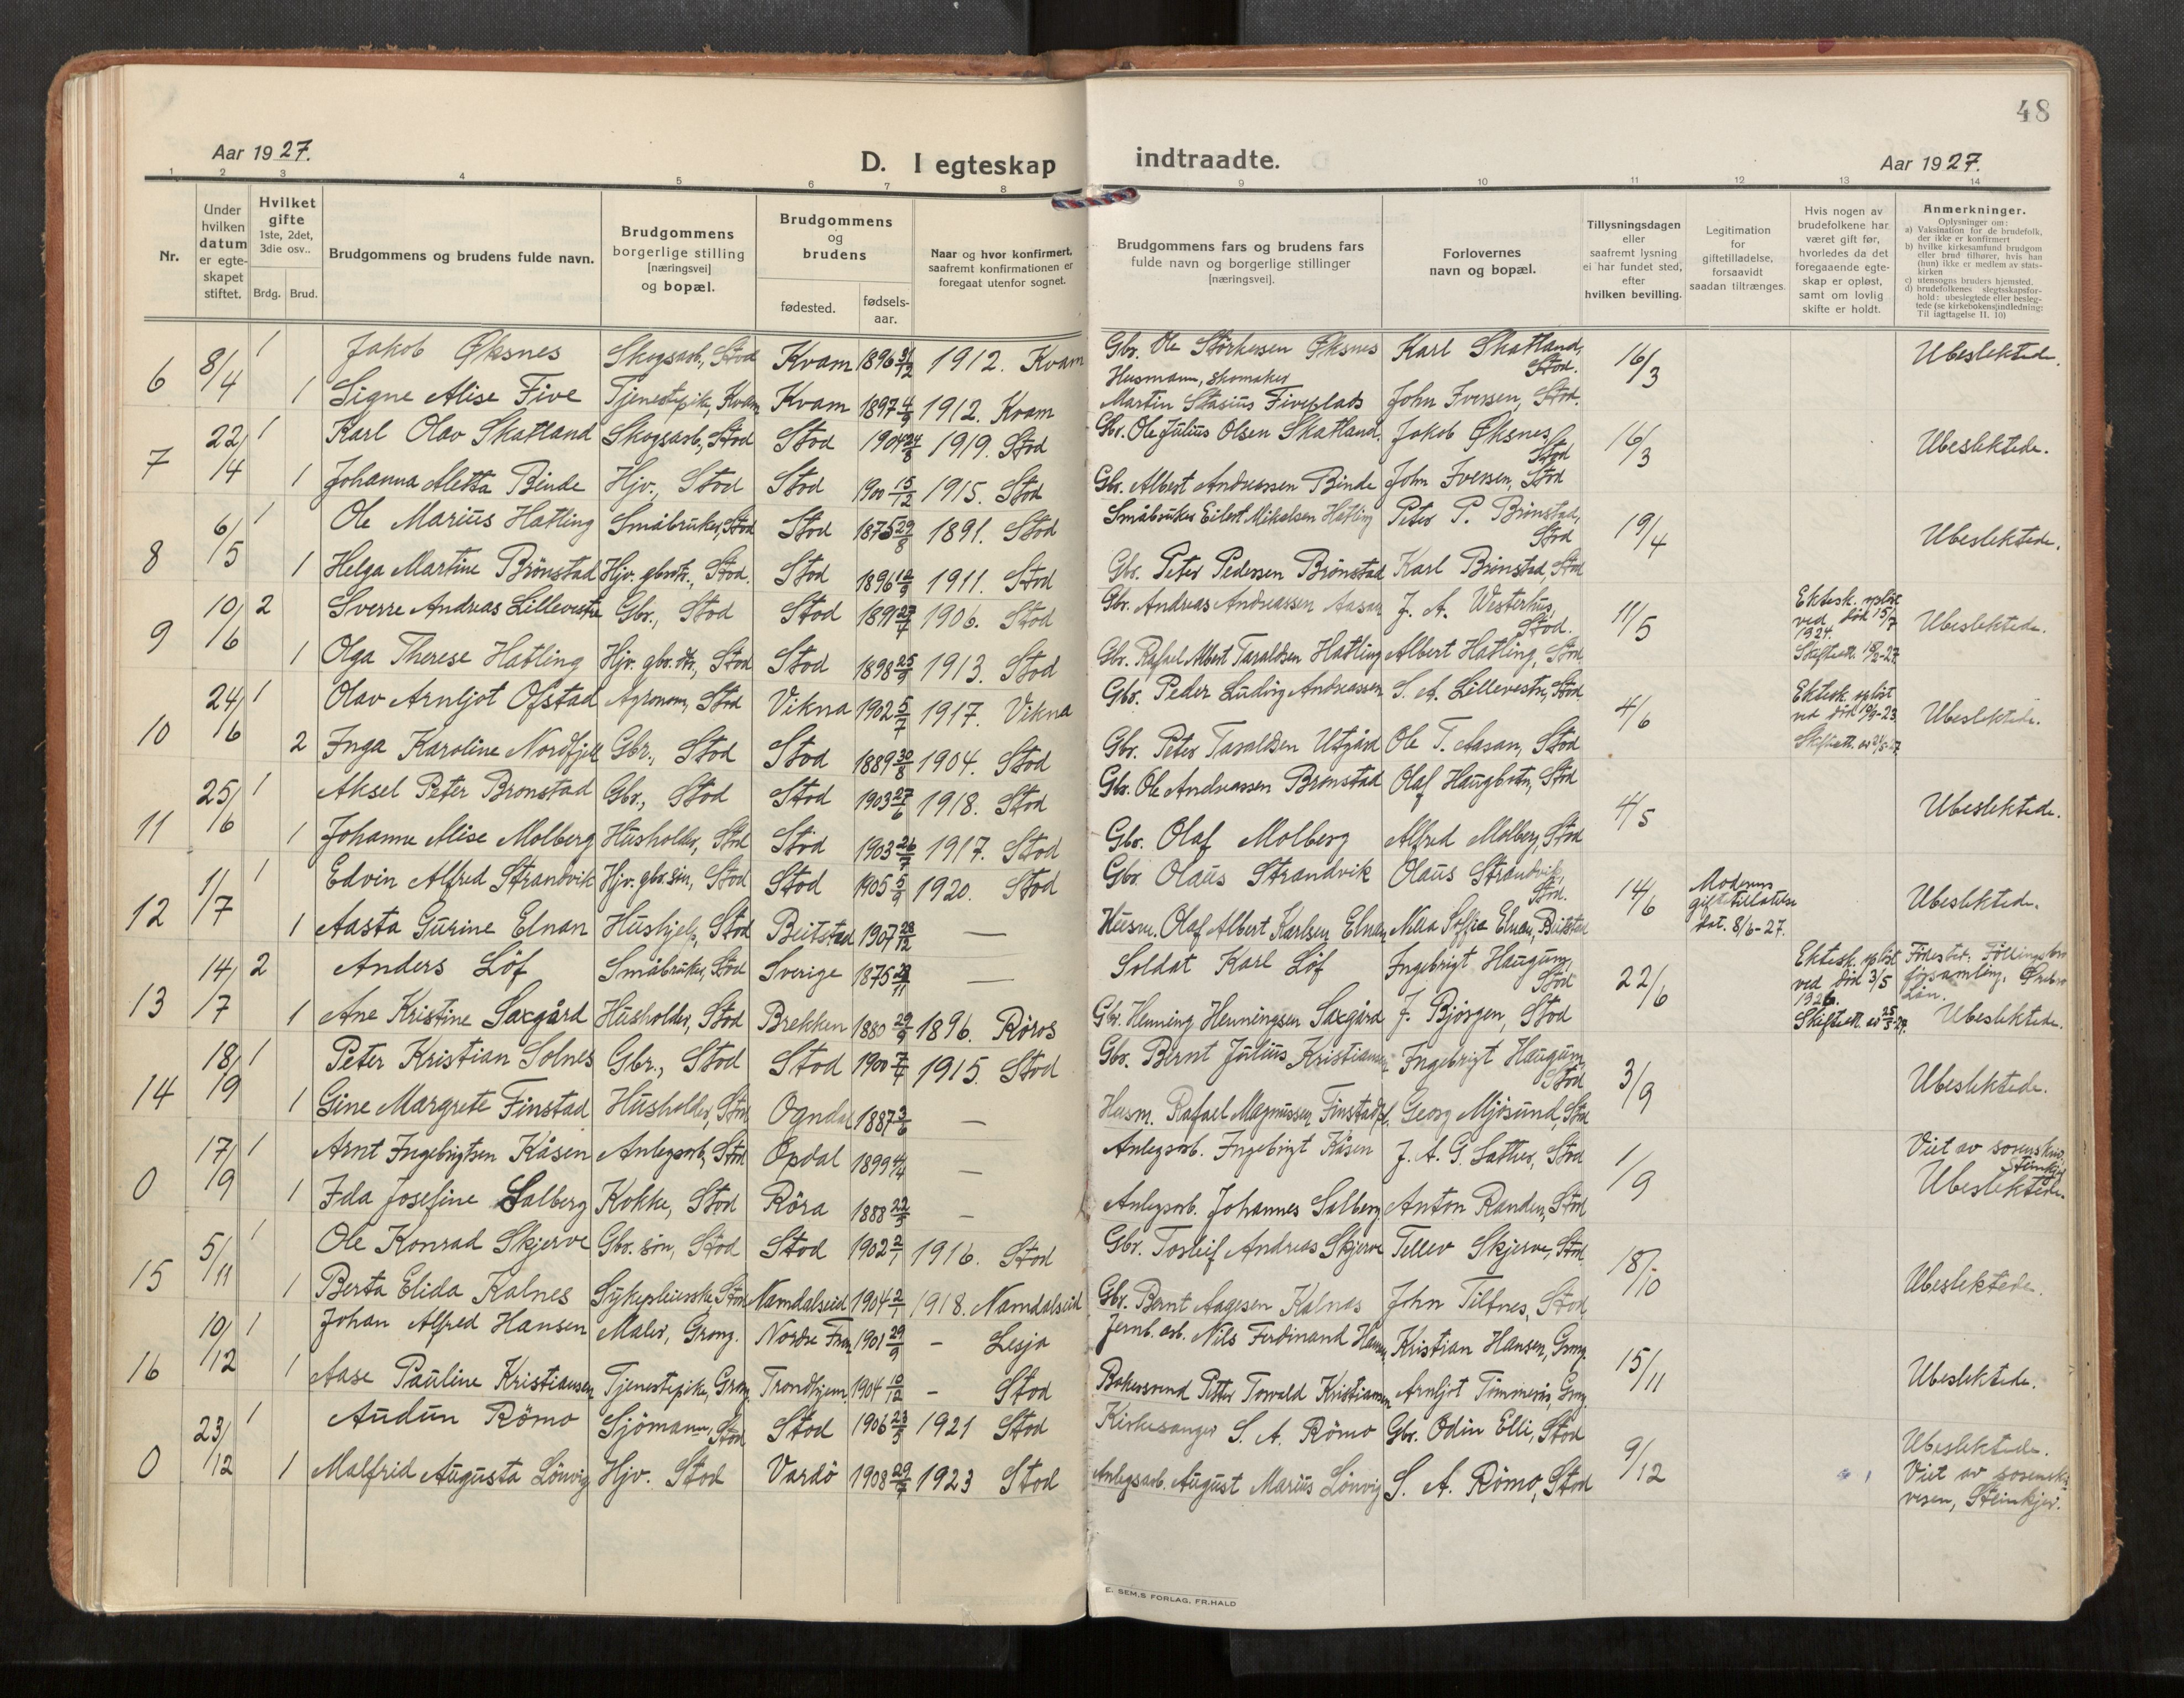 48
Aar 1927.
D. I egteskap indtraadte.
Aar 1927.
1 2 3 4 5 6 7 8 9 10 11 12 13 14
Nr.
Under hvilken datum er egteskapet stiftet.
Hvilket gifte 1ste, 2det, 3die osv..
Brdg. Brud.
Brudgommens og brudens fulde navn.
Brudgommens borgerlige stilling [næringsvei] og bopæl.
Brudgommens og brudens
fødested.
fødsels-aar.
Naar og hvor konfirmert, saafremt konfirmationen er foregaat utenfor sognet.
Brudgommens fars og brudens fars fulde navn og borgerlige stillinger [næringsvei].
Forlovernes navn og bopæl.
Tillysningsdagen eller saafremt lysning ei har fundet sted, efter hvilken bevilling.
Legitimation for giftetilladelse, forsaavidt saadan tiltrænges.
Hvis nogen av brudefolkene har været gift før, hvorledes da det foregaaende egteskap er opløst, samt om lovlig skifte er holdt.
Anmerkninger.
Oplysninger om:
a) Vaksination for de brudefolk, der ikke er konfirmert
b) hvilke kirkesamfund brudgom eller brud tilhører, hvis han (hun) ikke er medlem av statskirken
c) utensogns bruders hjemsted.
d) brudefolkenes slegtsskapsforhold: ubeslegtede eller beslegtede (se kirkebokens indledning: Til iagttagelse II. 10)
6 8/4 1 Jakob Øksnes Skogsarb., Stod Kvam 1896 31/12 1912. Kvam Gbr. Ole Størkersen Øksnes Karl Skatland, Stod. 16/3 Ubeslektede.
1 Signe Alise Five Tjenestepike, Kvam Kvam 1897 4/9 1912. Kvam Husmann, skomaker Martin Stasius Fiveplads John Iversen, Stod.
7 22/4 1 Karl Olav Skatland Skogsarb., Stod Stod 1904 24/8 1919. Stod Gbr. Ole Julius Olsen Skatland. Jakob Øksnes, Stod 16/3 Ubeslektede.
1 Johanna Aletta Binde Hjv., Stod Stod 1900 15/12 1915. Stod Gbr. Albert Andreassen Binde John Iversen, Stod
8 6/5 1 Ole Marius Hatling Småbruker, Stod Stod 1875 29/8 1891. Stod Småbruker Eilert Mikalsen Hatling Peter P. Brønstad, Stod 19/4 Ubeslektede.
1 Helga Martine Brönstad Hjv. gbrdtr., Stod. Stod 1896 12/9 1911. Stod Gbr. Peter Pedersen Brönstad Karl Brönstad, Stod
9 10/6 2 Sverre Andreas Lillevestre Gbr., Stod Stod 1891 27/7 1906. Stod Gbr. Andreas Andreassen Aasan J. A. Westerhus, Stod. 11/5 Ektesk. oplöst ved död 15/7 1924. Skifteatt. 18/2-27. Ubeslektede.
1 Olga Therese Hatling Hjv. gbr.dtr., Stod Stod 1898 25/9 1913. Stod Gbr. Rafael Albert Taraldsen Hatling Albert Hatling, Stod.
10 24/6 1 Olav Arnljot Ofstad Agronom, Stod Vikna 1902 5/7 1917. Vikna Gbr. Peder Ludvig Andreassen S. A. Lillevestre, Stod 4/6 Ektesk. oplöst ved död 19/9-23. Ubeslektede.
2 Inga Karoline Nordfjell Gbr., Stod Stod 1889 30/8 1904. Stod Gbr. Peter Taraldsen Utgård Ole T. Aasan, Stod
11 25/6 1 Aksel Peter Bronstad Gbr., Stod Stod 1903 27/6 1918. Stod Gbr. Ole Andreassen Brønstad Olaf Haugbotn, Stod 4/5 Ubeslektede.
1 Johanne Alise Molberg Husholder, Stod Stod 1903 26/7 1917. Stod Gbr. Olaf Molberg Alfred Molberg, Stod
12 1/7 1 Edvin Alfred Strandvik Hjv. gbr.sön, Stod Stod 1905 5/9 1920. Stod Gbr. Olaus Strandvik Olaus Strandvik, Stod. 14/6 Moderens giftetillatelse dat. 8/6-27. Ubeslektede.
1 Aasta Gurine Elnan Hushjelp, Stod Beitstad 1907 28/12 — Husm. Olaf Albert Karlsen Elnan Nilla Sofie Elnan, Beitstad
13 14/7 2 Anders Löf Småbruker, Stod Sverige 1875 28/11 — Soldat Karl Löf Ingebrigt Haugum, Stod 22/6 Ektesk. oplöst ved död 3/5 1926. Skifteatt. av 25/5-27. församling, Örebro Län. Ubeslektede.
1 Ane Kristine Saxgård Husholder, Stod Brekken 1880 29/9 1896. Röros Gbr. Henning Henningsen Saxgård J. Bjørgen, Stod
14 18/9 1 Peter Kristian Solnes Gbr., Stod Stod 1900 7/7 1915. Stod Gbr. Bernt Julius Kristiansen Ingebrigt Haugum, Stod 3/9 Ubeslektede.
1 Gine Margrete Finstad Husholder, Stod Ogndal 1887 3/6 — Husm. Rafael Magnussen Finstadpl. Georg Mjösund, Stod
0 17/9 1 Arnt Ingebrigtsen Kåsen Anlegsarb., Stod Opdal 1899 4/4 — Anlegsarb. Ingebrigt Kåsen J. A. G. Sather, Stod 1/9 Viet av sorenskriv. Steinkjer Ubeslektede.
1 Ida Josefine Salberg Kokke, Stod Röra 1888 22/5 — Anlegsarb. Johannes Salberg Anton Randen, Stod
15 5/11 1 Ole Konrad Skjerve Gbr. sön, Stod Stod 1902 2/1 1916. Stod Gbr. Torleif Andreas Skjerve Tellev Skjerve, Stod. 18/10 Ubeslektede.
1 Berta Elida Kalnes Sykepleierske, Stod Namdalseid 1904 2/1 1918. Namdalseid Gbr. Bernt Aagesen Kalnes John Tiltnes, Stod
16 10/12 1 Johan Alfred Hansen Maler, Grong. Nordre Fron 1901 29/9 – Lesja Jernb. arb. Nils Ferdinand Hansen Kristian Hansen, Grong. 15/11 Ubeslektede.
1 Aase Pauline Kristiansen Tjenestepike, Grong Trondhjem 1904 10/12 – Stod Bakersvend Petter Torvald Kristiansen Arnljot Tömmerås, Grong
0 23/12 1 Audun Römo Sjömann, Stod Stod 1906 23/5 1921 Stod Kirkesanger S. A. Römo Gbr. Odin Elli, Stod 9/12 Ubeslektede. Viet av sorenskri- veren, Steinkjer.
1 Malfrid Augusta Lönvig Hjv. Stod Vardö 1908 29/7 1923 Stod Anlegsarb. August Marius Lönvig S. A. Römo, Stod
E. SEM.S FORLAG, FR.HALD